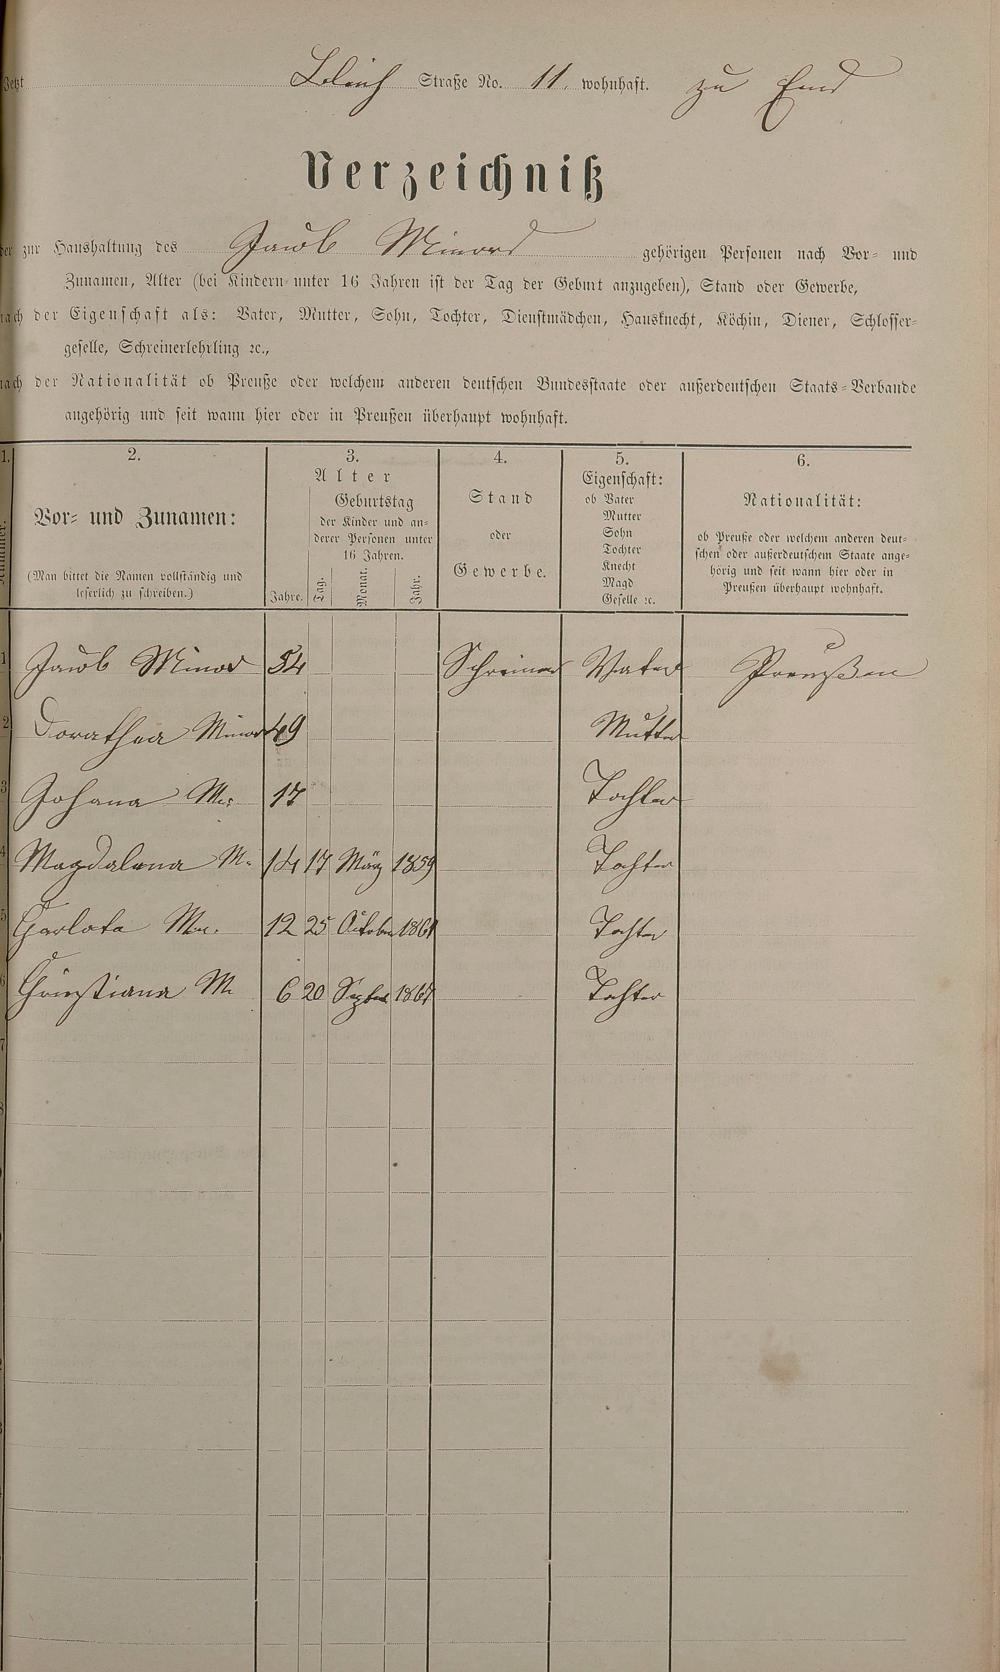 Jetzt Bleich Straße No. 11. wohnhaft. zu Ems
Verzeichniß
der zur Haushaltung des Jacob Minor gehörigen Personen nach Vor- und
Zunamen, Alter (bei Kindern unter 16 Jahren ist der Tag der Geburt anzugeben), Stand oder Gewerbe,
nach der Eigenschaft als: Vater, Mutter, Sohn, Tochter, Dienstmädchen, Hausknecht, Köchin, Diener, Schlosser-
geselle, Schreinerlehrling ꝛc.,
nach der Nationalität ob Preuße oder welchem anderen deutschen Bundesstaate oder außerdeutschen Staats-Verbande
angehörig und seit wann hier oder in Preußen überhaupt wohnhaft.
1. 2. 3. 4. 5. 6.
Nummer.
Vor- und Zunamen:
(Man bittet die Namen vollständig und
leserlich zu schreiben.)
Alter
Jahre.
Geburtstag
der Kinder und an-
derer Personen unter
16 Jahren.
Tag. Monat. Jahr.
Stand
oder
Gewerbe.
Eigenschaft:
ob Vater
Mutter
Sohn
Tochter
Knecht
Magd
Geselle ꝛc.
Nationalität:
ob Preuße oder welchem anderen deut-
schen oder außerdeutschem Staate ange-
hörig und seit wann hier oder in
Preußen überhaupt wohnhaft.
1 Jacob Minor 54 Schreiner Vater Preußen
2 Dorathea Minor 49 Mutter
3 Johana M. 17 Tochter
4 Magdalena M. 14 17 März 1859 Tochter
5 Carlota M. 12 25 October 1861 Tochter
6 Christiana M 6 20 Septbr 1867 Tochter
7
8